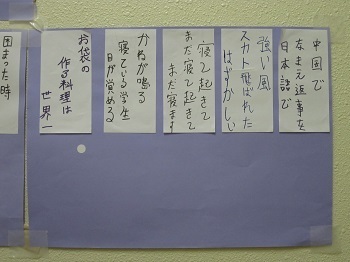 中国で
なまえ返事を
日本語で
強い風
スカト飛ばれた
はずかしい
寝て起きて
まだ寝て起きて
まだ寝ます
かねが鳴る
寝ている学生
目が覚める
お袋の
作る料理は
世界一
困った時